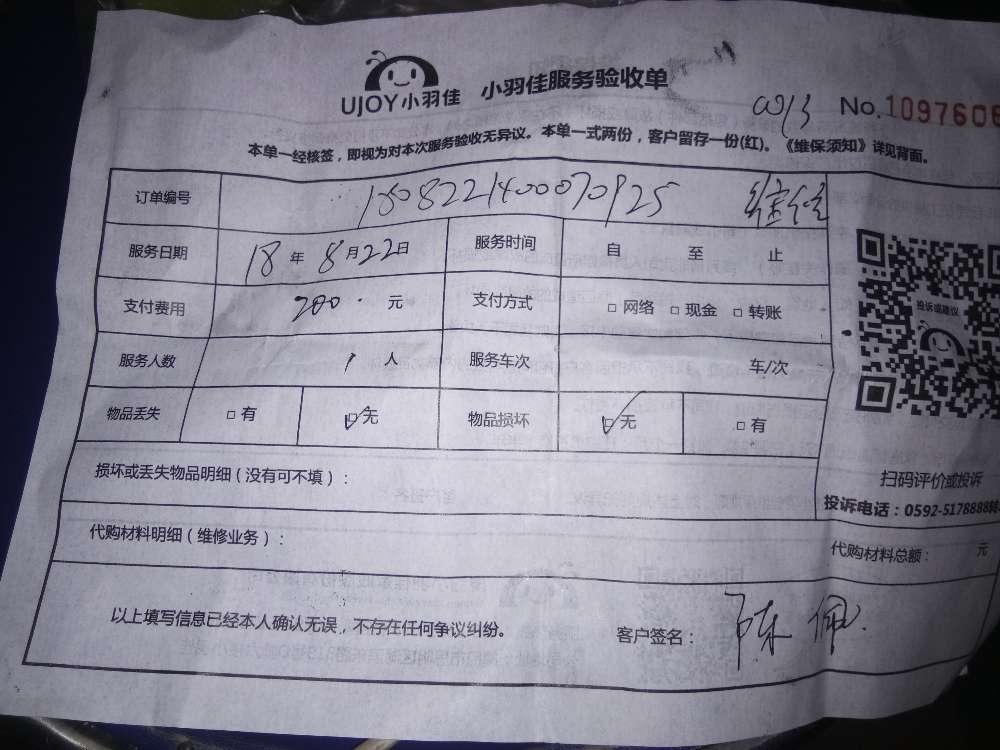 UJOY小羽佳 小羽佳服务验收单
0013 No.1097606
本单一经核签，即视为对本次服务验收无异议。本单一式两份，客户留存一份(红)。《维保须知》详见背面。
订单编号 1808221400070925
服务日期 18年8月22日 服务时间 自 至 止
支付费用 200. 元 支付方式 □网络 □现金 □转账
投诉或建议
服务人数 1 人 服务车次 车/次
物品丢失 □有 ☑无 物品损坏 ☑无 □有
损坏或丢失物品明细（没有可不填）：
扫码评价或投诉
投诉电话：0592-5178888转
代购材料明细（维修业务）：
代购材料总额： 元
以上填写信息已经本人确认无误，不存在任何争议纠纷。 客户签名：陈佩